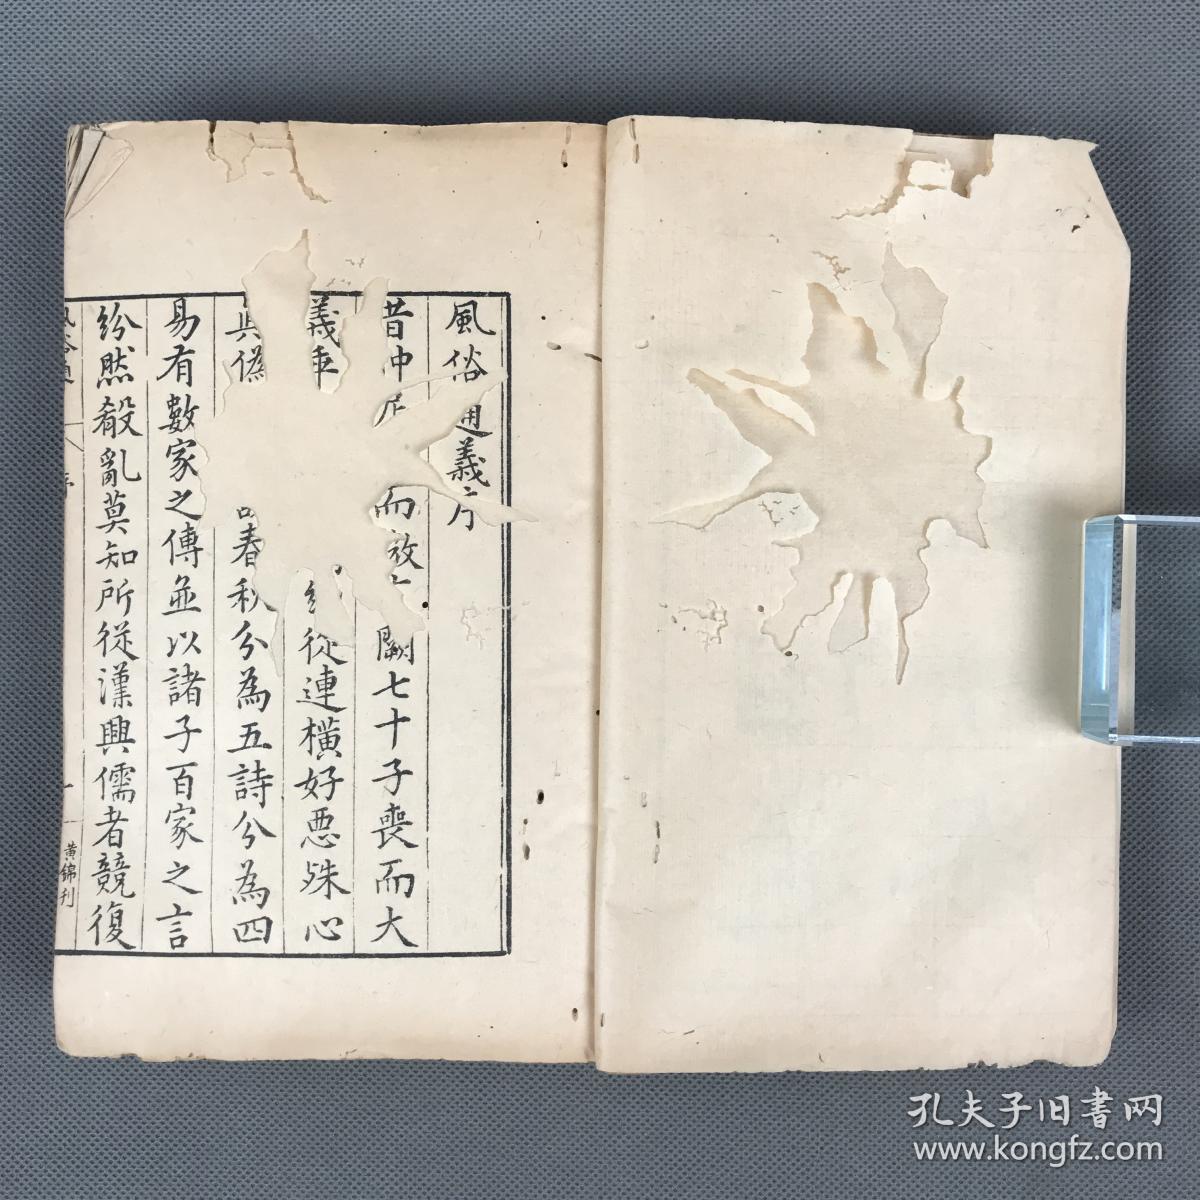 風俗通義序
昔仲尼 而 闕七十子喪而大
義乖 從連橫好惡殊心
真偽 春秋分為五詩分為四
易有數家之傳並以諸子百家之言
紛然殽亂莫知所從漢興儒者競復
黄錦刋
孔夫子旧書网
www.kongfz.com